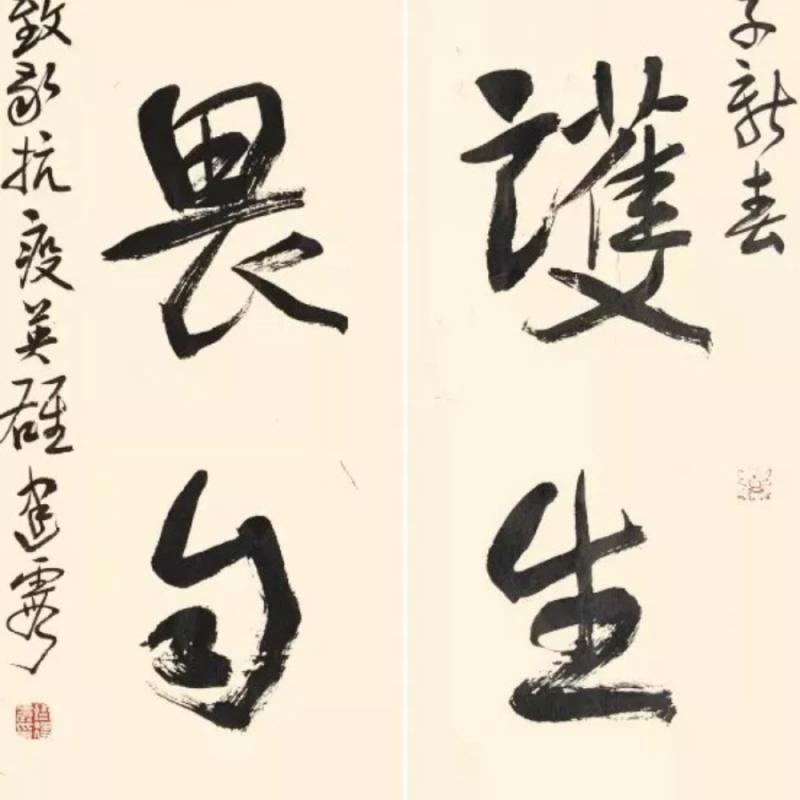 子新春
護生
畏
致敬抗疫英雄建霞